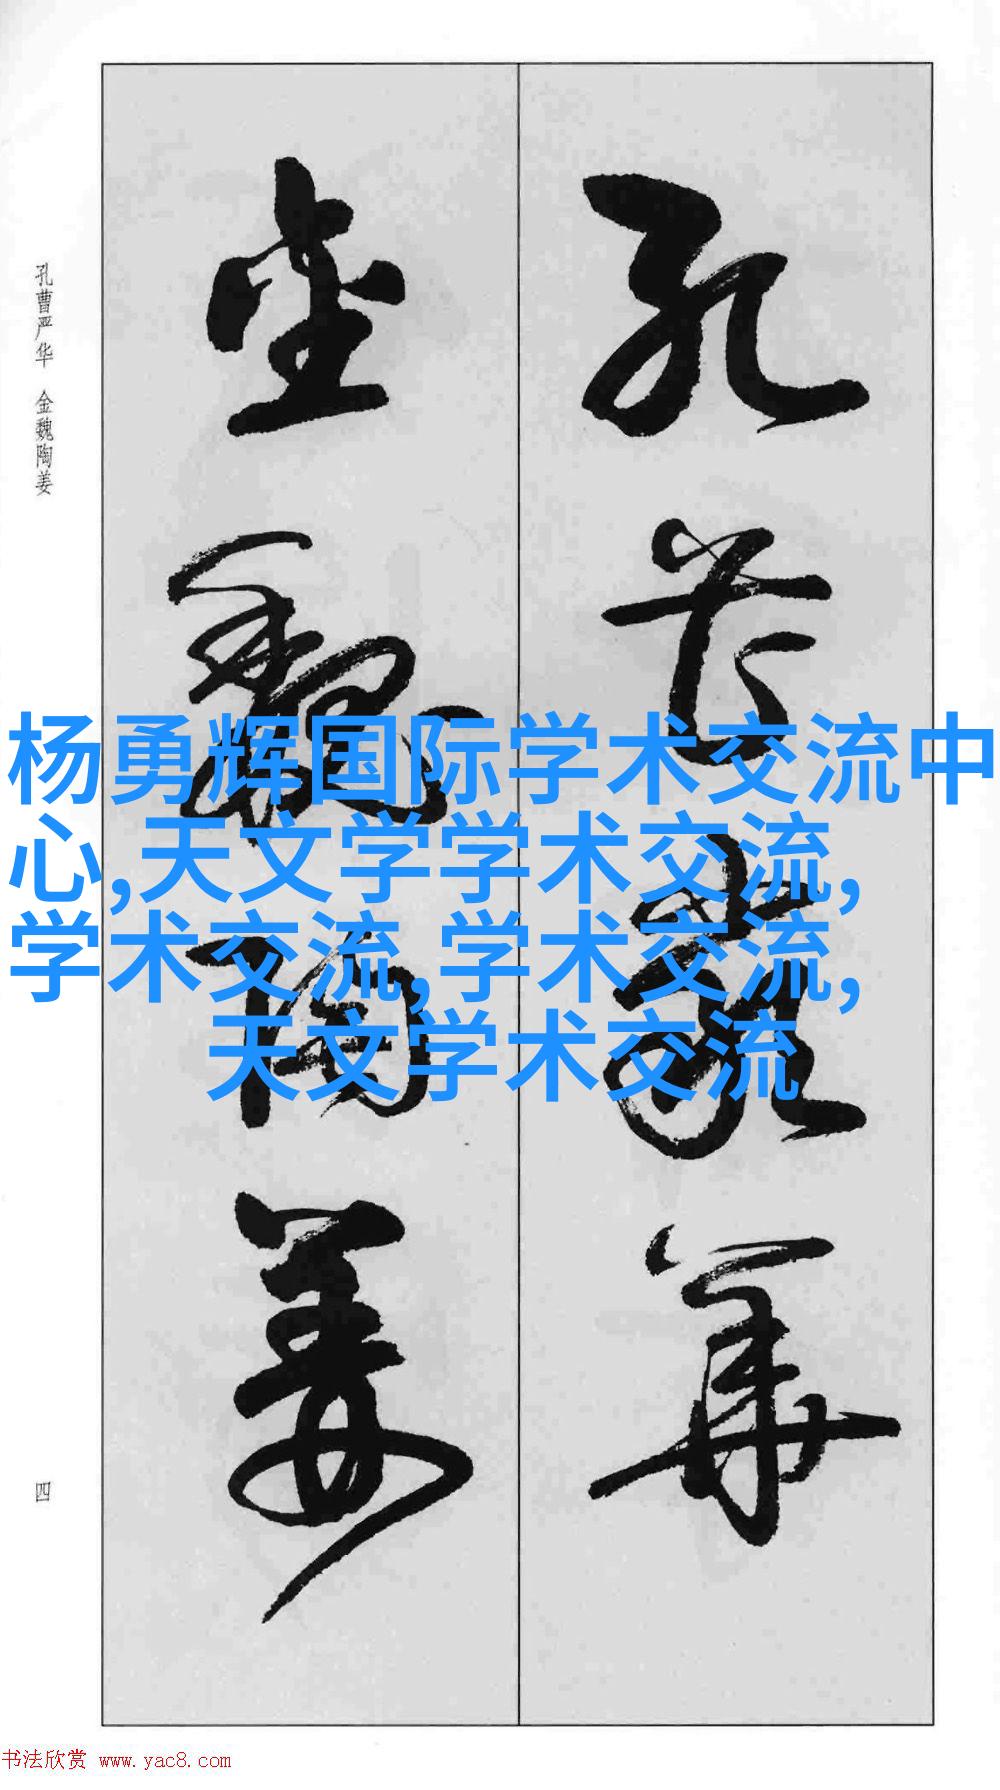 孔曹严华
金魏陶姜
孔曹严华 金魏陶姜
杨勇辉国际学术交流中
心,天文学学术交流,
学术交流,学术交流,
天文学术交流
四
书法欣赏 www.yac8.com